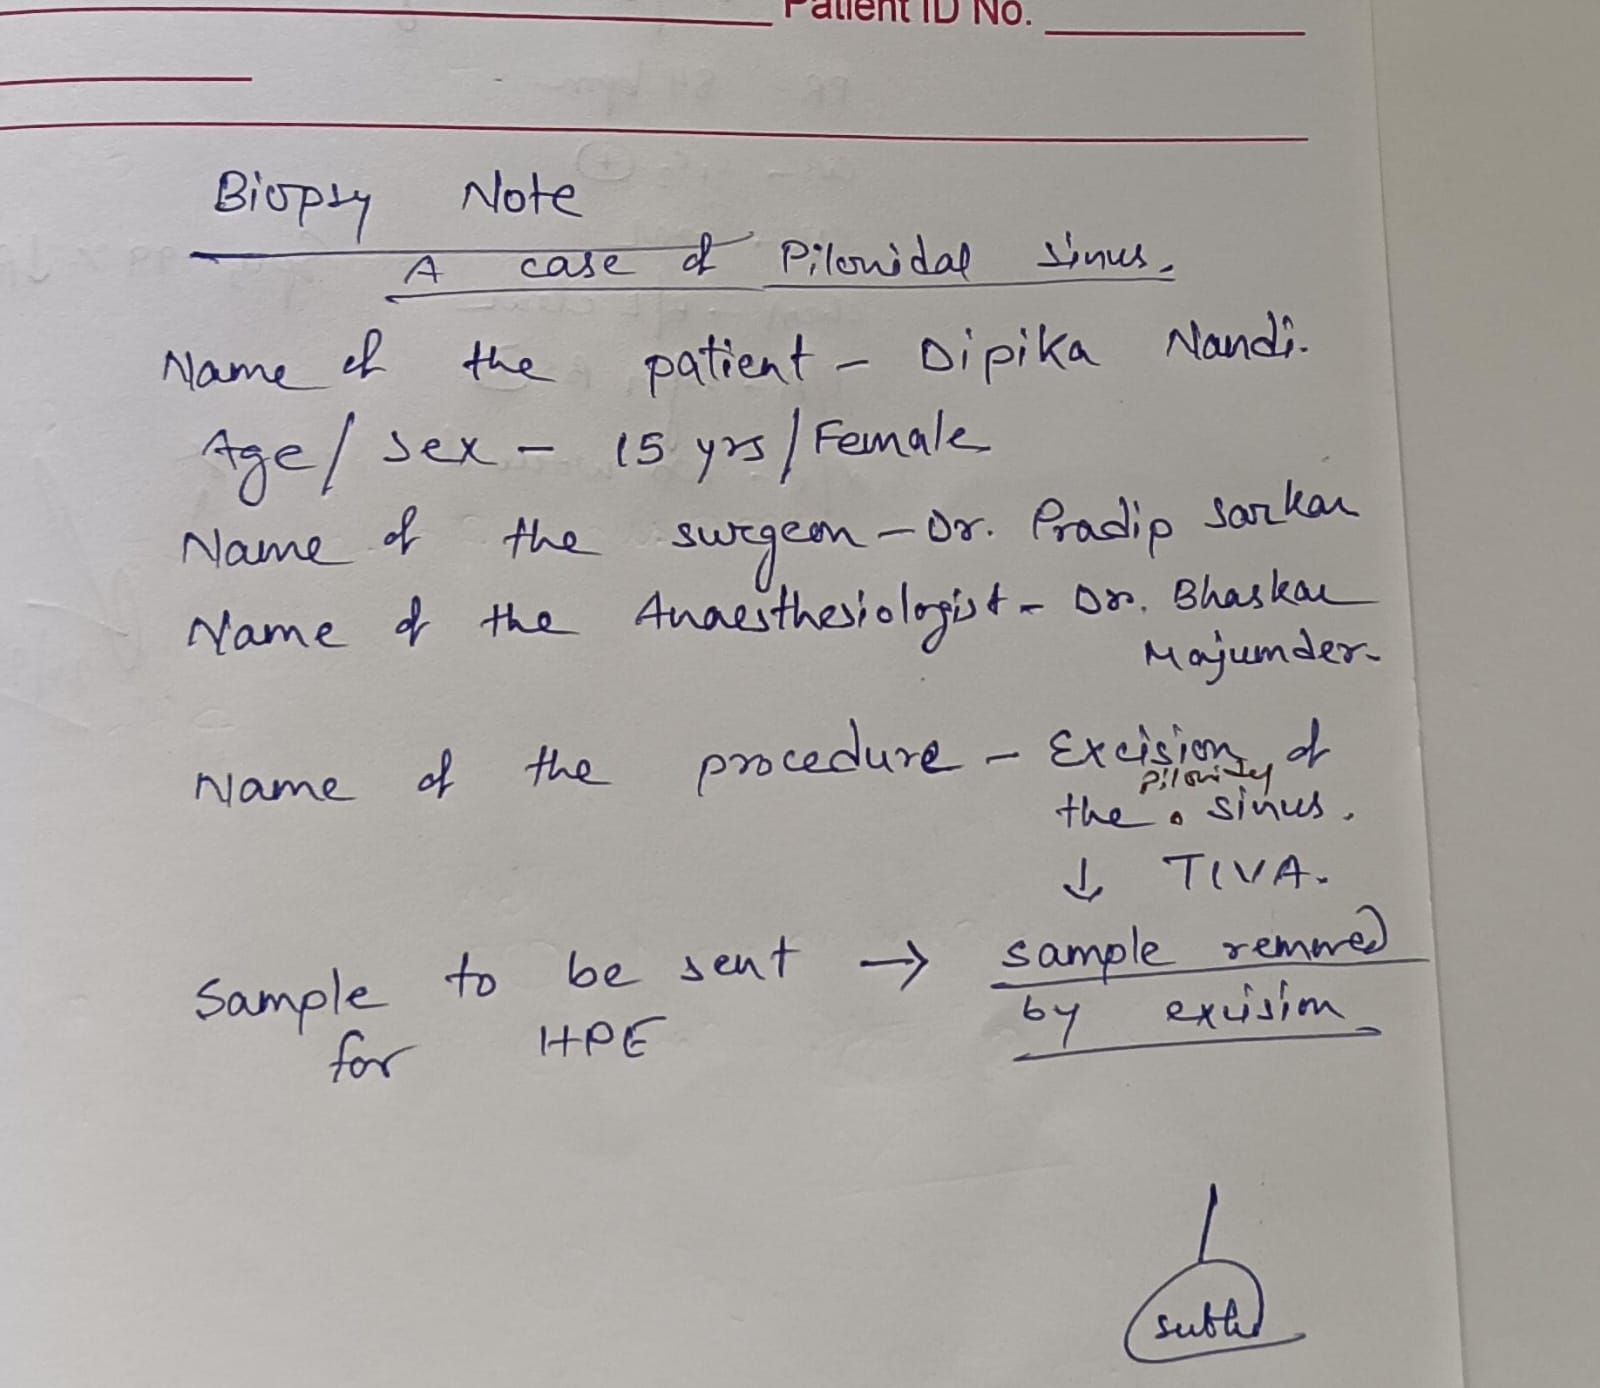 Patient ID No.
Biopsy Note
A case of Pilonidal sinus.
Name of the patient - Dipika Nandi.
Age/ Sex - 15 yrs/Female
Name of the surgeon - Dr. Pradip Sarkar
Name of the Anaesthesiologist - Dr. Bhaskar
Majumder-
Name of the procedure - Excision of
the pilonidal sinus.
↓ TIVA.
Sample to be sent → sample removed
for HPE by excision